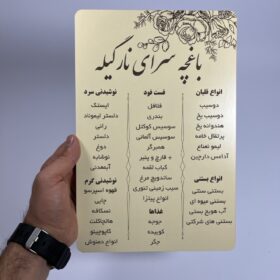 باغچه سرای نارگیله
انواع قلیان
دوسیب
دوسیب یخ
هندوانه یخ
پرتقال خامه
لیمو نعناع
آدامس دارچین
انواع بستنی
بستنی سنتی
بستنی میوه ای
آب هویج بستنی
بستنی های شرکتی
فست فود
فلافل
بندری
سوسیس کوکتل
سوسیس آلمانی
همبرگر
+ قارچ و پنیر
کباب لقمه
ساندویچ مرغ
سیب زمینی تنوری
انواع پیتزا
غذاها
جوجه
کوبیده
جگر
نوشیدنی سرد
ایستک
دلستر لیموناد
رانی
دلستر
دوغ
نوشابه
آبمعدنی
نوشیدنی گرم
قهوه اسپرسو
چای
نسکافه
هاتچاکلت
کاپوچینو
انواع دمنوش